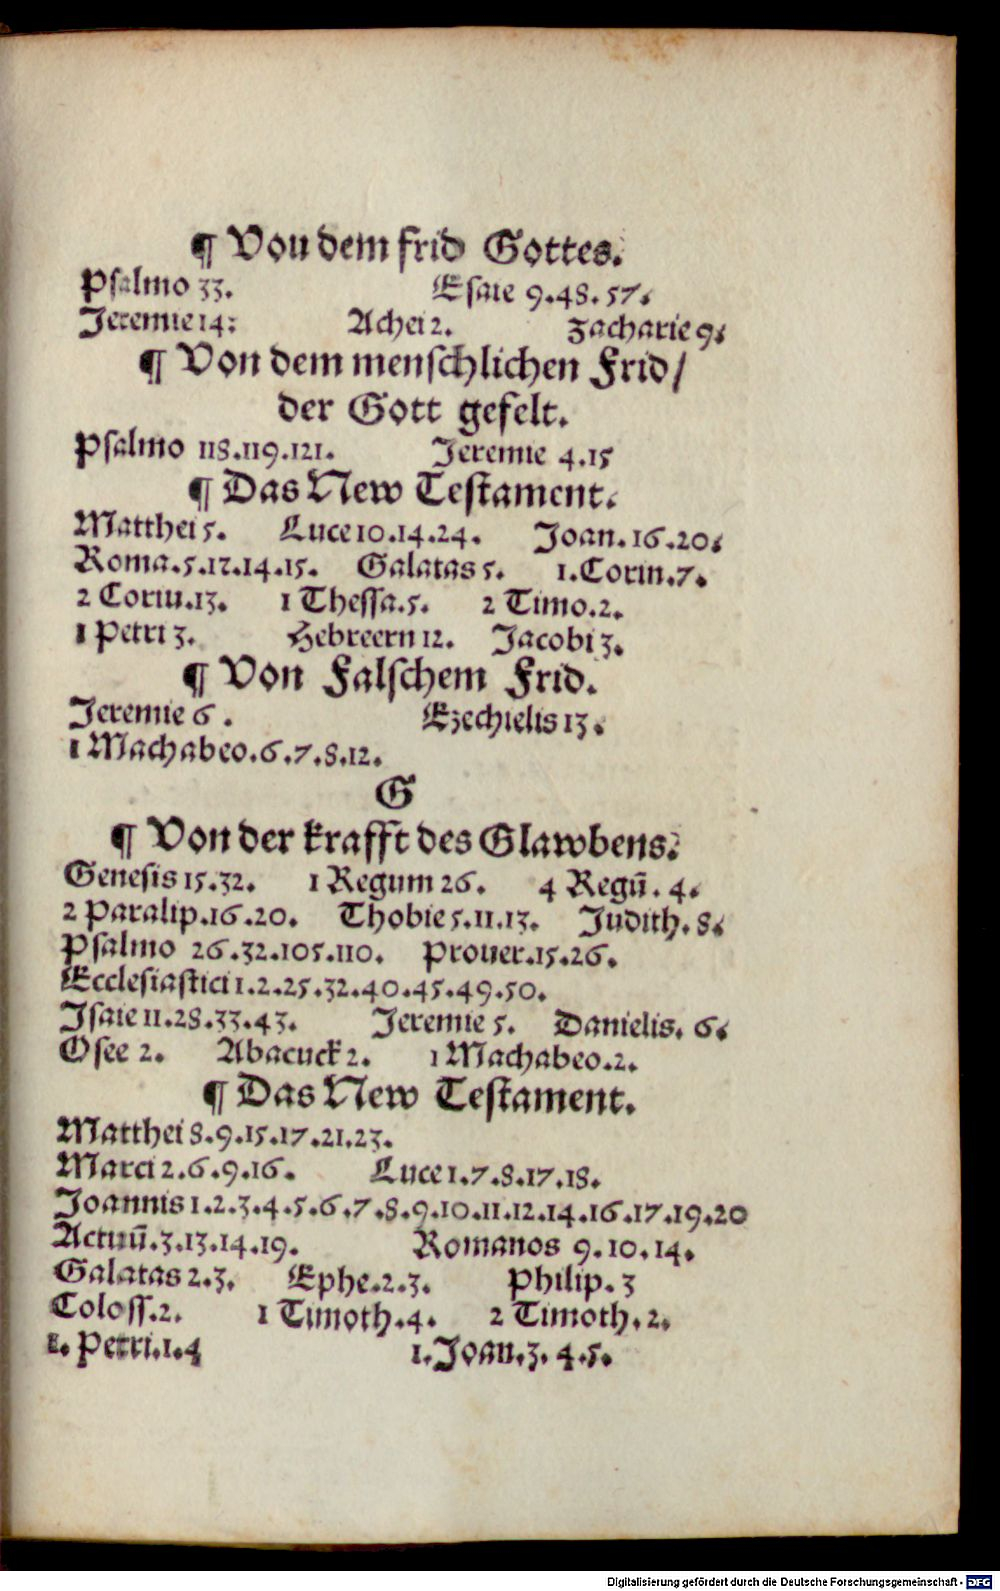 ¶ Von dem frid Gottes.
Psalmo 33. Esaie 9.48.57.
Jeremie 14: Achei 2. Zacharie 9.
¶ Von dem menschlichen Frid/
der Gott gefelt.
Psalmo 118.119.121. Jeremie 4.15
¶ Das New Testament.
Matthei 5. Luce 10.14.24. Joan. 16.20.
Roma.5.12.14.15. Galatas 5. 1.Corin.7.
2 Corin.13. 1 Thessa.5. 2 Timo.2.
1 Petri 3. Hebreern 12. Jacobi 3.
¶ Von Falschem Frid.
Jeremie 6. Ezechielis 13.
1 Machabeo.6.7.8.12.
G
¶ Von der krafft des Glawbens.
Genesis 15.32. 1 Regum 26. 4 Regū. 4.
2 Paralip.16.20. Thobie 5.11.13. Judith. 8.
Psalmo 26.32.105.110. Prouer.15.26.
Ecclesiastici 1.2.25.32.40.45.49.50.
Isaie 11.28.33.43. Jeremie 5. Danielis. 6.
Osee 2. Abacuck 2. 1 Machabeo.2.
¶ Das New Testament.
Matthei 8.9.15.17.21.23.
Marci 2.6.9.16. Luce 1.7.8.17.18.
Joannis 1.2.3.4.5.6.7.8.9.10.11.12.14.16.17.19.20
Actuū.3.13.14.19. Romanos 9.10.14.
Galatas 2.3. Ephe.2.3. Philip. 3
Coloss.2. 1 Timoth.4. 2 Timoth.2.
1. Petri.1.4 1.Joan.3.4.5.
Digitalisierung gefördert durch die Deutsche Forschungsgemeinschaft - DFG